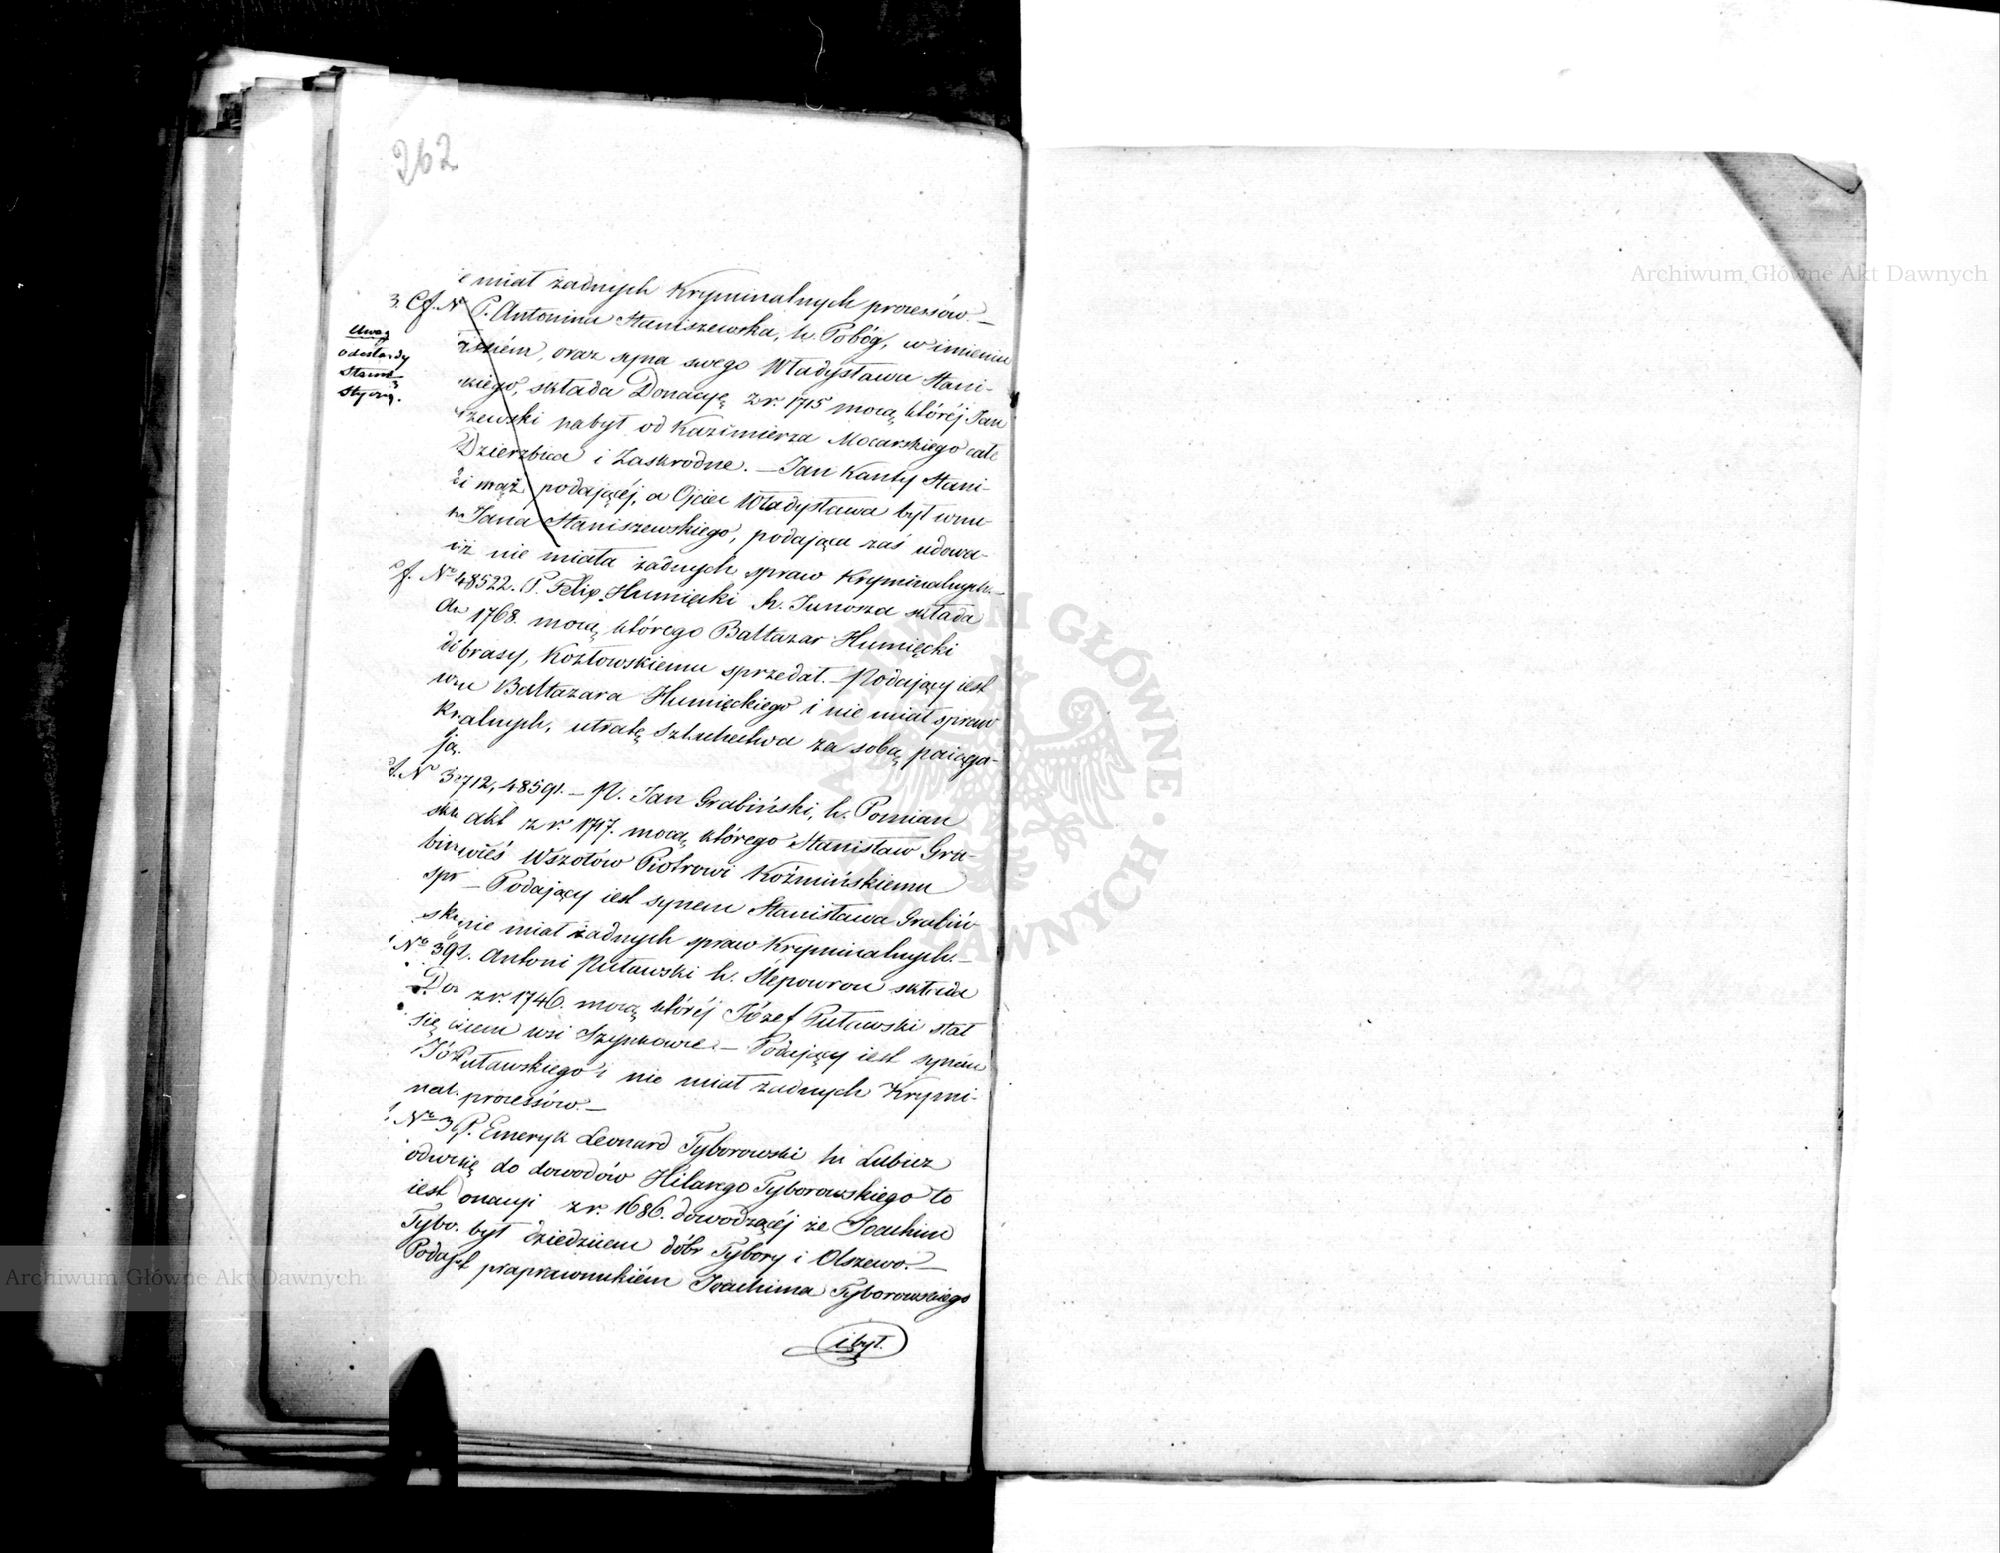 262
miał żadnych Kryminalnych processów. —
3. Cf. N P. Antonina Staniszewska, h. Pobóg, w imieniu
oraz syna swego Władysława Stani-
kiego, składa Donacyę z r. 1715 mocą któréj Jan
szewski nabył od Kazimierza Mocarskiego całe
Dzierzbia i Zaskrodne. — Jan Kanty Stani-
ki mąż podającéj, a Ojciec Władysława był wnu-
Jana Staniszewskiego, podająca zaś udowa-
iż nie miała żadnych spraw Kryminalnych. —
Uwag
odesła
Stani
Stycz.
cf. No 48522. P. Felix Humięcki h. Junosza składa
1768. mocą którego Baltazar Humięcki
dóbra Kozłowskiemu sprzedał. — Podający iest
wnu Baltazara Humięckiego i nie miał spraw
Kr alnych, utratę szlachectwa za sobą pociąga-
ją.
cf. No 3 712, 48591. — P. Jan Grabiński, h. Pomian
skła akt z r. 1717. mocą którego Stanisław Gra-
bi wieś Wszołów Piotrowi Koźmińskiemu
spr — Podający iest synem Stanisława Grabiń
sk nie miał żadnych spraw Kryminalnych. —
No 39 P. Antoni Puławski h. Ślepowron składa
Do z r. 1746. mocą któréj Józef Puławski stał
się wsi Szynkowie — Podający iest synem
Jó Puławskiego i nie miał żadnych Krymi-
nal. processów. —
No 3 P. Emeryk Leonard Tyborowski h. Lubicz
odw się do dowodów Hilarego Tyborowskiego to
iest onacyi z r. 1686. dowodzącéj że Joachim
Tybo. był dziedzicem dóbr Tybory i Olszewo. —
Podaj st praprawnukiém Joachima Tyborowskiego
i był.
Archiwum Główne Akt Dawnych
Archiwum Główne Akt Dawnych
ARCHIWUM GŁÓWNE AKT DAWNYCH